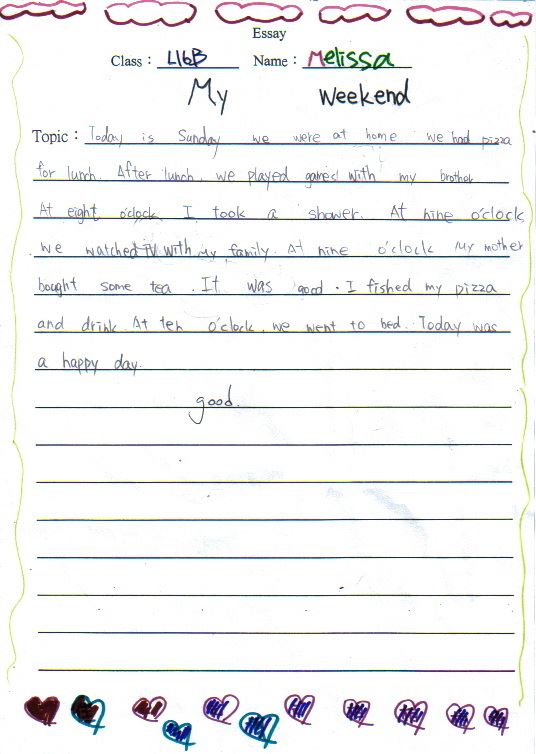 Essay
Class : L16B Name : Melissa
My Weekend
Topic : Today is Sunday we were at home we had pizza
for lunch. After lunch, we played games with my brother
At eight o'clock I took a shower. At nine o'clock
we watched TV with my family. At nine o'clock My mother
bought some tea. It was good. I fished my pizza
and drink. At ten o'clock, we went to bed. Today was
a happy day.
good.